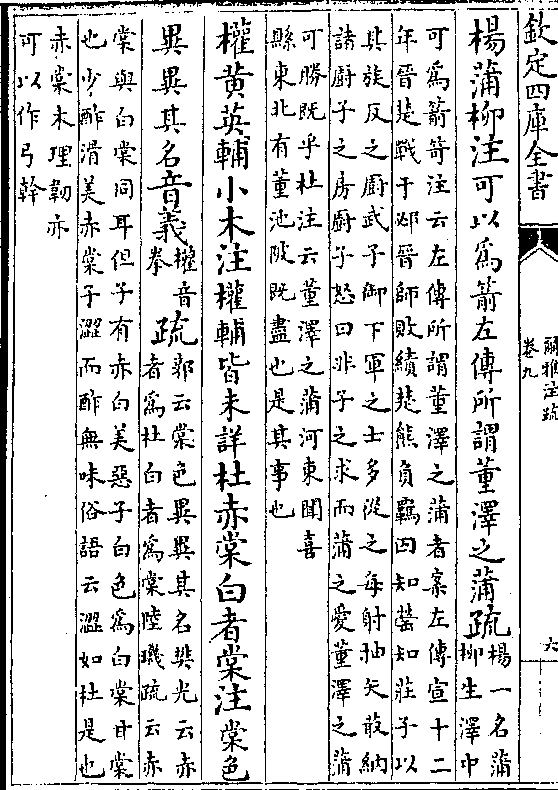 欽定四庫全書
爾雅注疏
卷九
六
楊蒲柳注可以爲箭左傳所謂董澤之蒲疏楊一名蒲
柳生澤中
可爲箭笴注云左傳所謂董澤之蒲者案左傳宣十二
年晉楚戰于邲晉師敗績楚熊負羈囚知罃知莊子以
其族反之廚武子御下軍之士多從之每射抽矢菆納
諸廚子之房廚子怒曰非子之求而蒲之愛董澤之蒲
可勝既乎杜注云董澤之蒲河東聞喜
縣東北有董池陂既盡也是其事也
權黄英輔小木注權輔皆未詳杜赤棠白者棠注棠色
異異其名音義權音
拳疏郭云棠色異異其名樊光云赤
者爲杜白者爲棠陸璣疏云赤
棠與白棠同耳但子有赤白美惡子白色爲白棠甘棠
也少酢滑美赤棠子澀而酢無味俗語云澀如杜是也
赤棠木理韌亦
可以作弓幹